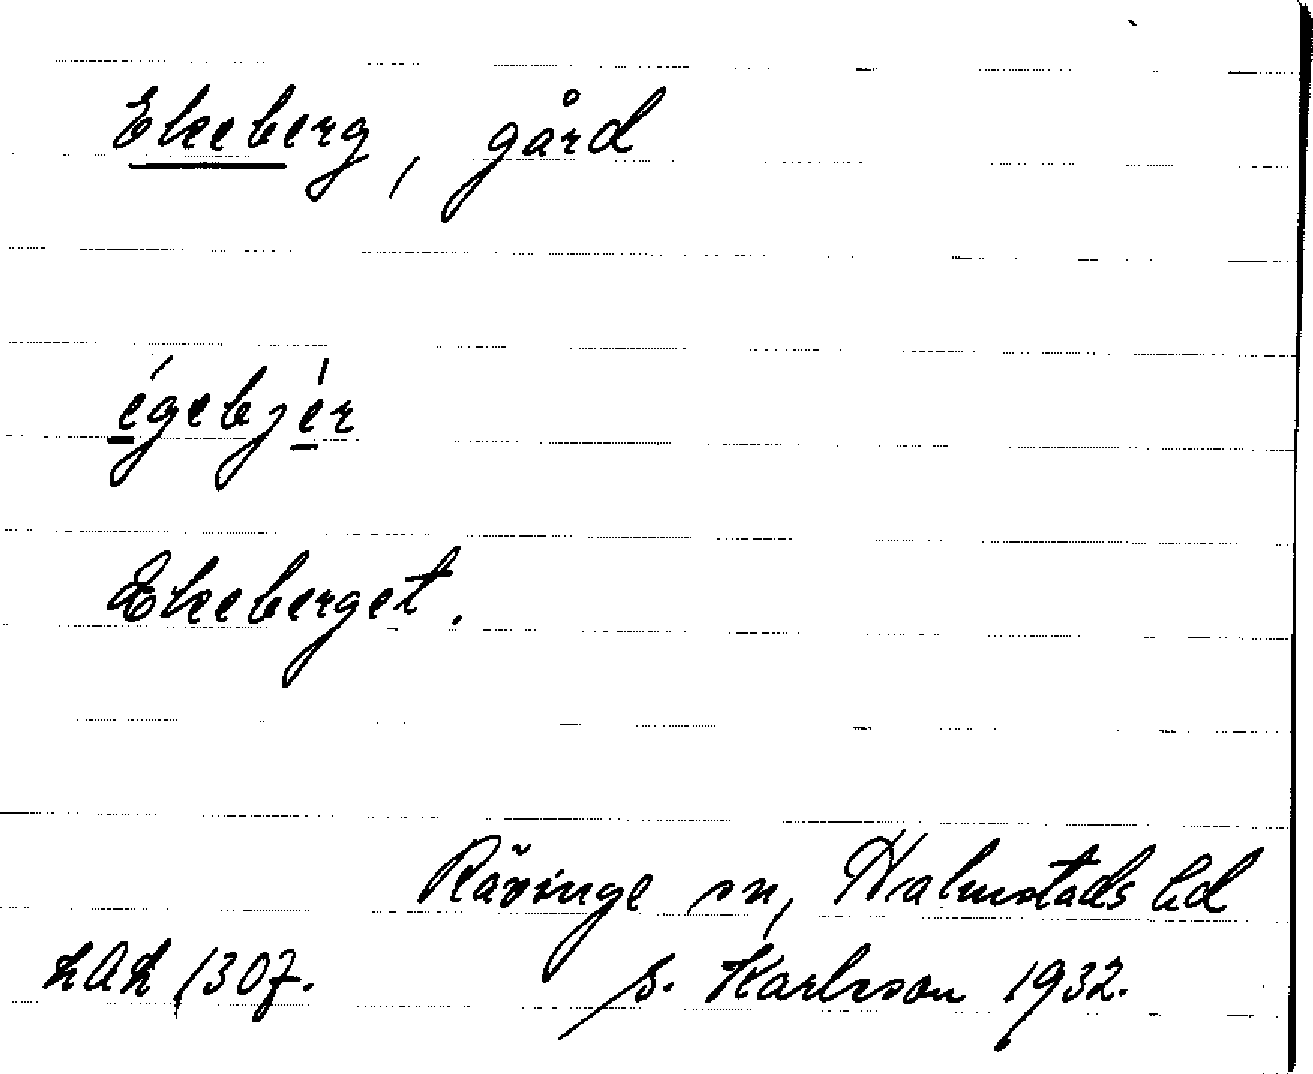 Ekeberg, gård
égebjér
Ekeberget.
Rävinge sn, Halmstads hd
LAL 1307. S. Karlsson 1932.